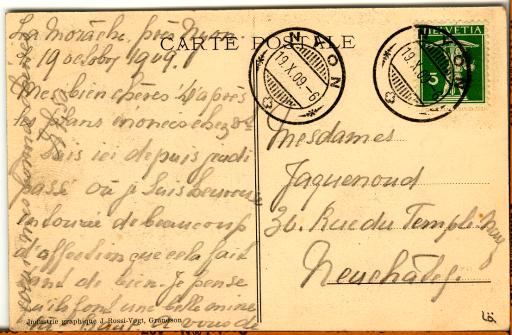 CARTE POSTALE
La Morache, près Nyon
19 octobre 1909.
Mes bien chères! D'après
les plans énoncés chez
suis ici depuis jeudi
passé où je suis heureuse
entourée de beaucoup
d'affection que cela fait
tant de bien. Je pense
qu'ils font une belle mine
vous de
Industrie graphique J. Rossi-Vogt, Grandson
NYON
19.X.09
NYON
19.X.09
HELVETIA
5
Mesdames
Jaquenoud
30. Rue du Temple Neuf
Neuchâtel.